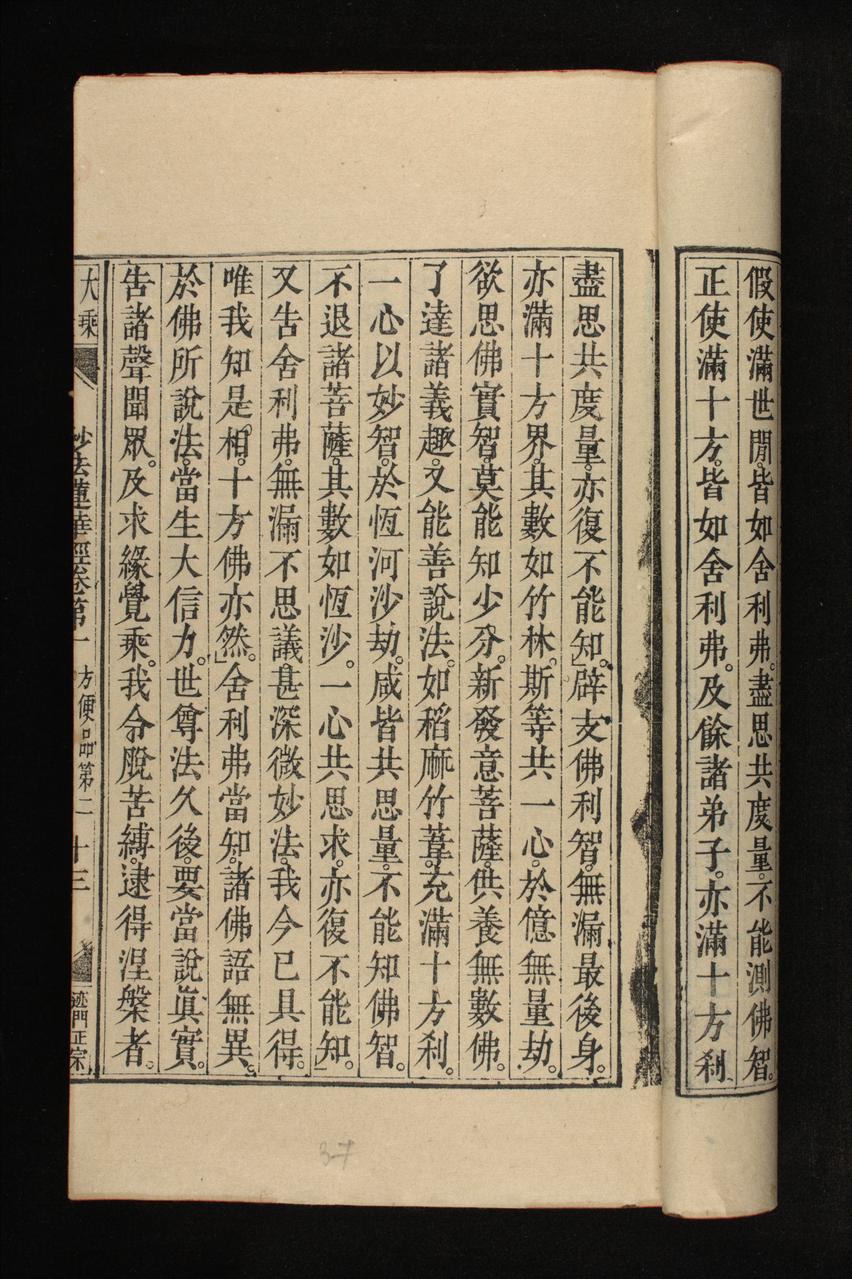 假使滿世閒。皆如舍利弗。盡思共度量。不能測佛智。
正使滿十方。皆如舍利弗。及餘諸弟子。亦滿十方刹
盡思共度量。亦復不能知。」辟支佛利智。無漏最後身。
亦滿十方界。其數如竹林。斯等共一心。於億無量劫。
欲思佛實智。莫能知少分。新發意菩薩。供養無數佛。
了達諸義趣。又能善說法。如稻麻竹葦。充滿十方刹。
一心以妙智。於恆河沙劫。咸皆共思量。不能知佛智。
不退諸菩薩。其數如恆沙。一心共思求。亦復不能知。」
又告舍利弗。無漏不思議。甚深微妙法。我今已具得。
唯我知是相。十方佛亦然。」舍利弗當知。諸佛語無異。
於佛所說法。當生大信力。世尊法久後。要當說眞實。
告諸聲聞眾。及求緣覺乘。我令脫苦縛。逮得涅槃者。
大乘 妙法蓮華經卷第一 方便品第二 十三 迹門正宗
37